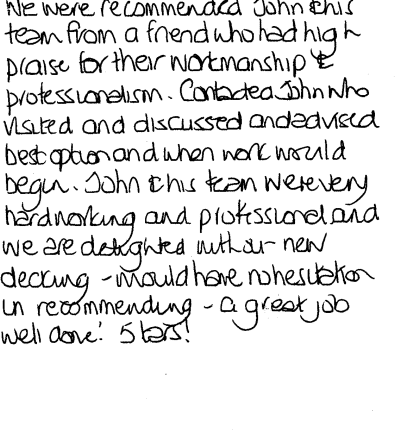 We were recommended John & his
team from a friend who had high
praise for their workmanship &
professionalism. Contacted John who
visited and discussed and advised
best option and when work would
begin. John & his team were very
hardworking and professional and
we are delighted with our new
decking - would have no hesitation
in recommending - a great job
well done! 5 stars!